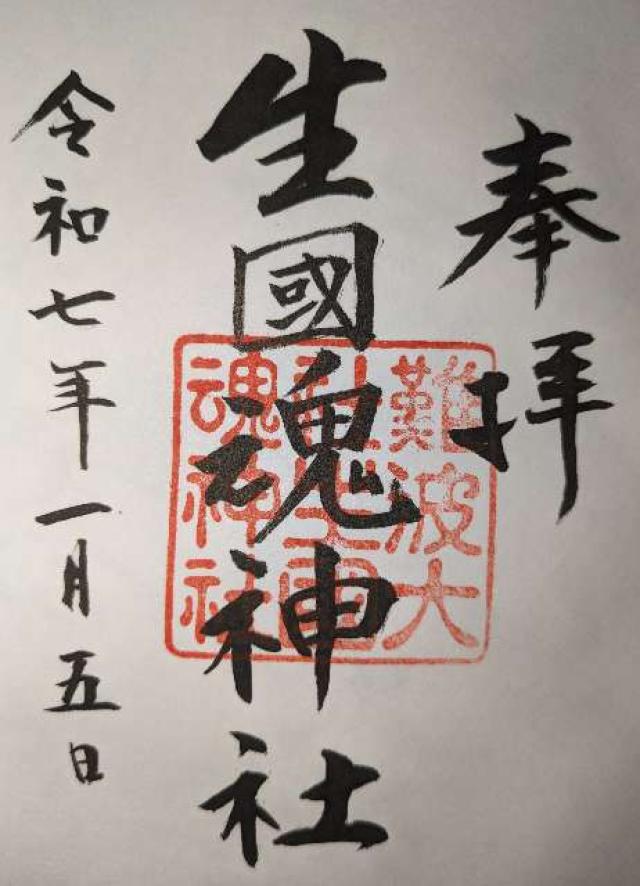 奉拝
生國魂神社
令和七年一月五日
難波大
社生國
魂神社